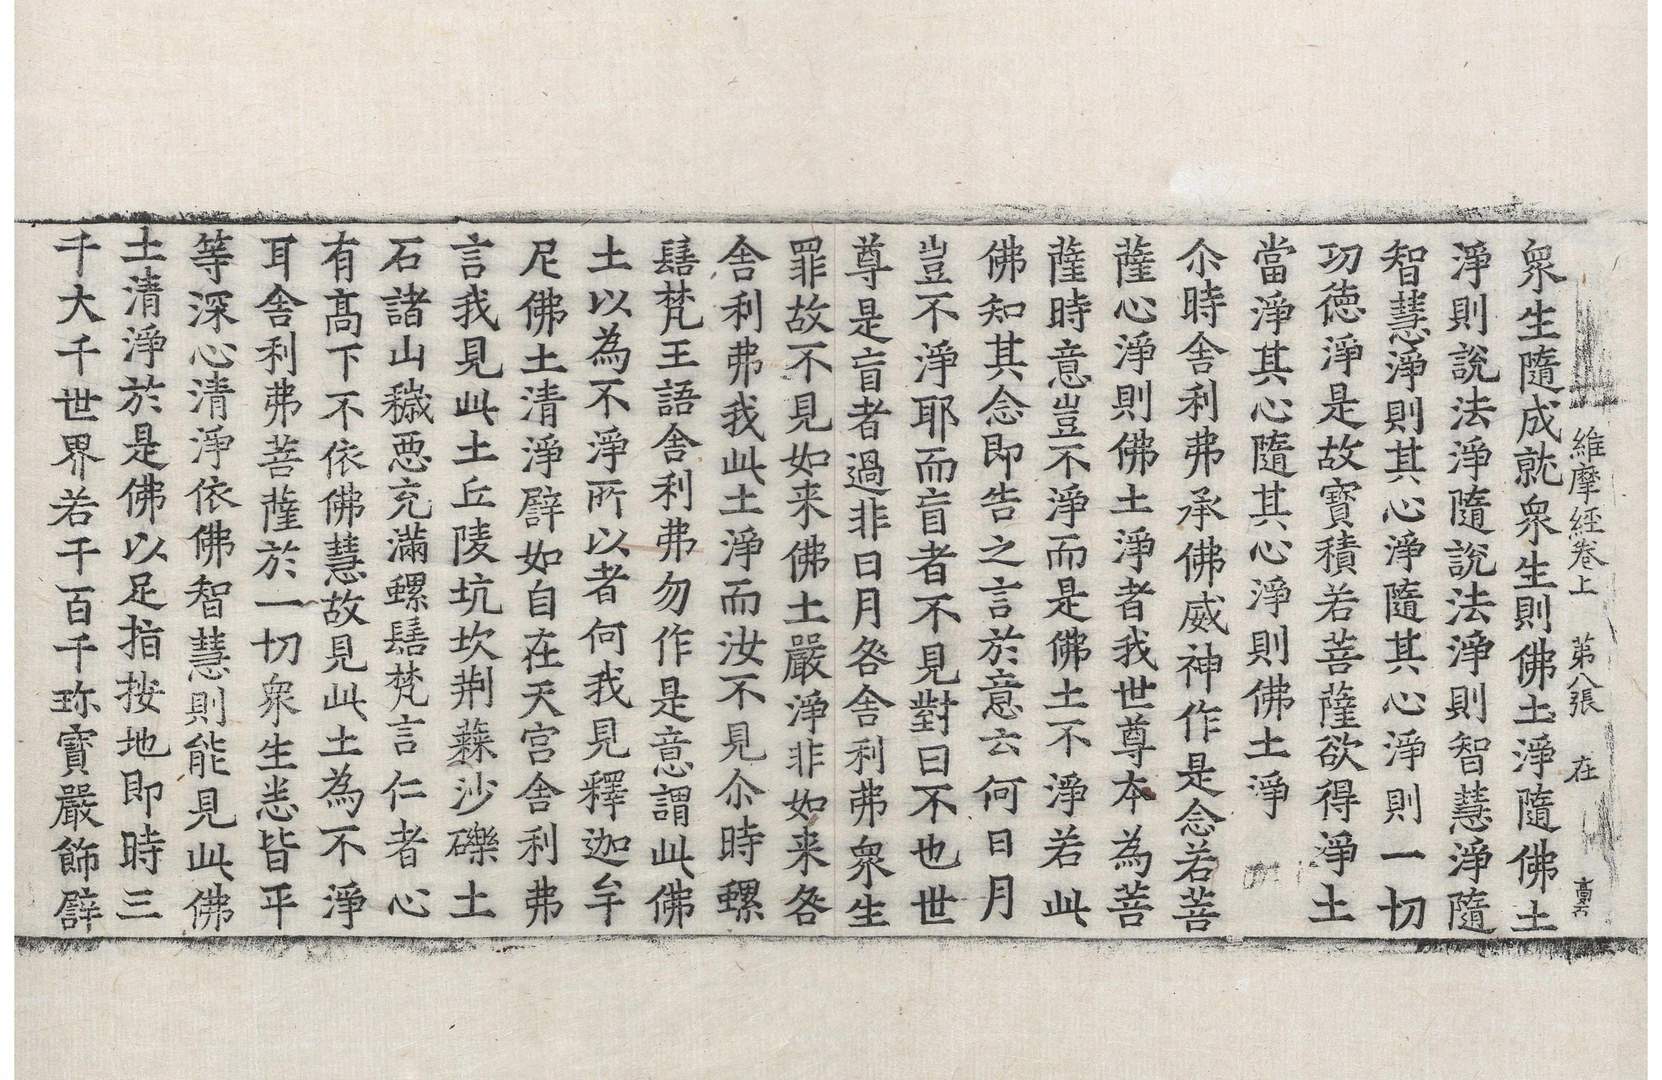 維摩經卷上　第八張　在
眾生隨成就眾生則佛土淨隨佛土
淨則說法淨隨說法淨則智慧淨隨
智慧淨則其心淨隨其心淨則一切
功徳淨是故寶積若菩薩欲得淨土
當淨其心隨其心淨則佛土淨
尒時舍利弗承佛威神作是念若菩
薩心淨則佛土淨者我世尊本為菩
薩時意豈不淨而是佛土不淨若此
佛知其念即告之言於意云何日月
豈不淨耶而盲者不見對曰不也世
尊是盲者過非日月咎舍利弗眾生
罪故不見如来佛土嚴淨非如来咎
舍利弗我此土淨而汝不見尒時螺
髻梵王語舍利弗勿作是意謂此佛
土以為不淨所以者何我見釋迦牟
尼佛土清淨譬如自在天宮舍利弗
言我見此土丘陵坑坎荆蕀沙礫土
石諸山穢悪充滿螺髻梵言仁者心
有髙下不依佛慧故見此土為不淨
耳舍利弗菩薩於一切眾生悉皆平
等深心清淨依佛智慧則能見此佛
土清淨於是佛以足指按地即時三
千大千世界若干百千珎寶嚴飾譬